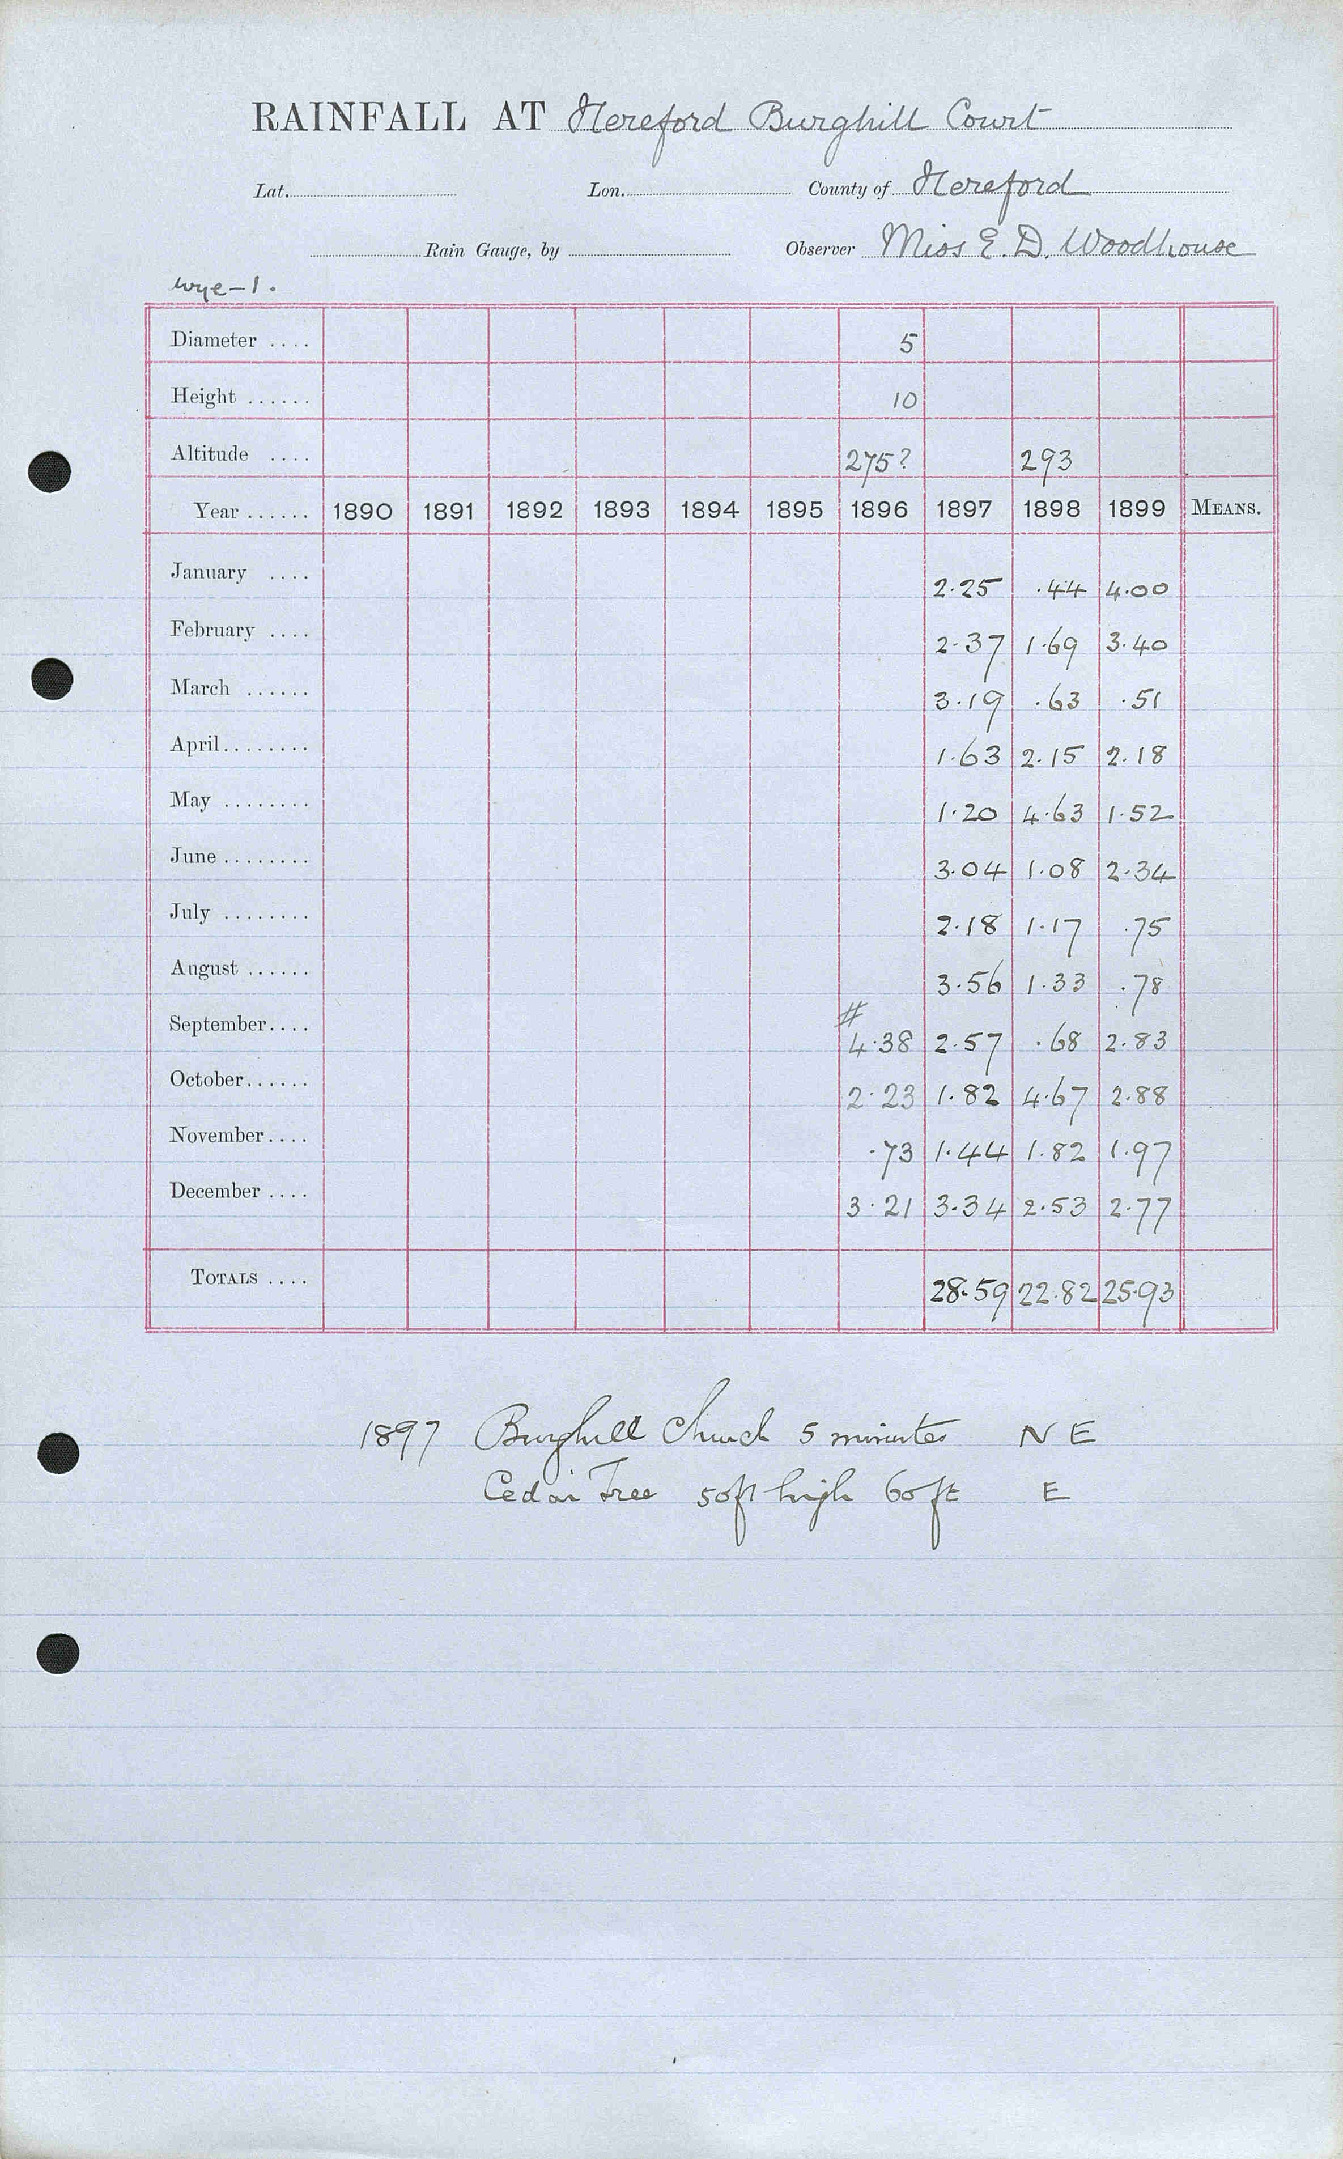 RAINFALL AT Hereford Burghill Court
Lat. Lon. County of Hereford
Rain Gauge, by Observer Miss E. D. Woodhouse
Wye-1.
Diameter .... 5
Height ...... 10
Altitude .... 275? 293
Year ...... 1890 1891 1892 1893 1894 1895 1896 1897 1898 1899 MEANS.
January .... 2.25 .44 4.00
February .... 2.37 1.69 3.40
March ...... 3.19 .63 .51
April ........ 1.63 2.15 2.18
May ........ 1.20 4.63 1.52
June ........ 3.04 1.08 2.34
July ........ 2.18 1.17 .75
August ...... 3.56 1.33 .78
#
September.... 4.38 2.57 .68 2.83
October...... 2.23 1.82 4.67 2.88
November.... .73 1.44 1.82 1.97
December .... 3.21 3.34 2.53 2.77
TOTALS .... 28.59 22.82 25.93
1897 Burghill Church 5 minutes N E
Cedar Tree 50ft high 60 ft E